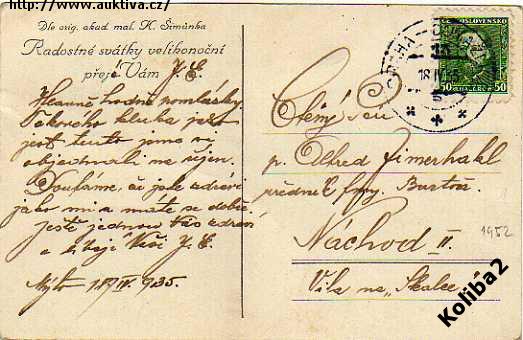 http://www.auktiva.cz/
Dle orig. akad. mal. K. Šimůnka
Radostné svátky velikonoční
přeje Vám J. E.
Hlavně hodně pomlázky.
Takového kluka jako
jest tento jsme si
objednali na říjen.
Doufáme, že jste zdrávi
jako my a máte se dobře
ještě jednou Vás zdraví
a líbají Vaši J. E.
1935.
PRAHA
18 IV 35
ČESKOSLOVENSKO
50 50
Ctěný pan
p. Alfred
předník fy. Bartoň
Náchod II.
Vila na "Skalce"
1952
Koliba2